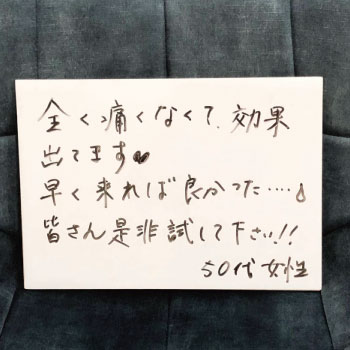 全く痛くなくて、効果
出てます♥
早く来れば良かった‥‥💧
皆さん是非試して下さい!!
50代女性